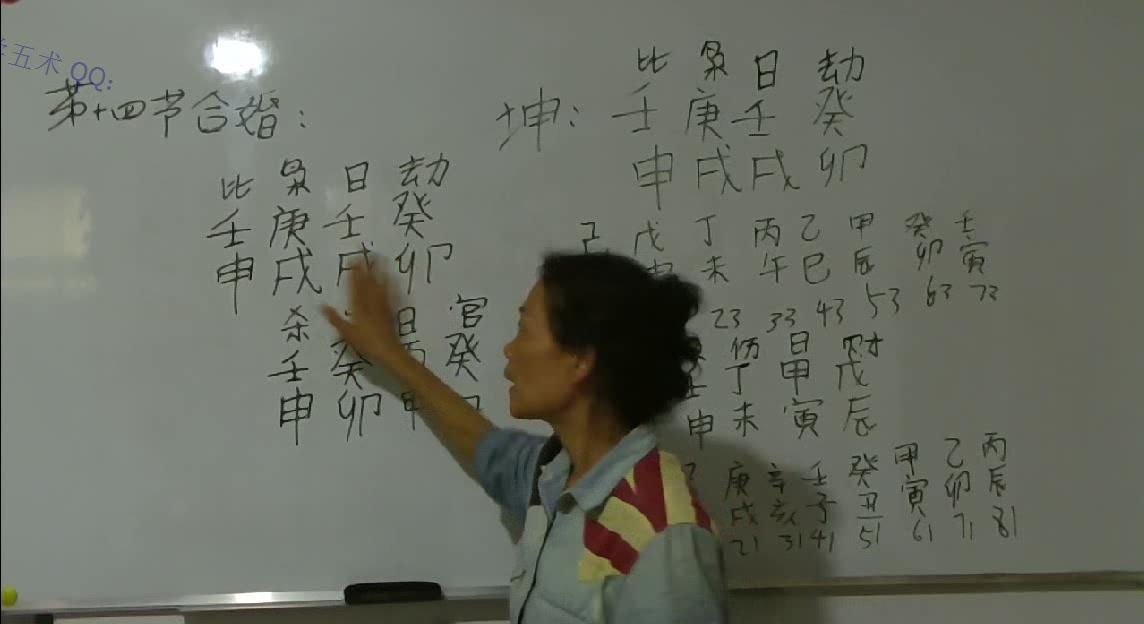 五术 QQ:
第十四节合婚:
比 枭 日 劫
壬 庚 壬 癸
申 戌 戌 卯
杀 日 官
壬 癸 丙 癸
申 卯 申
坤: 比 枭 日 劫
壬 庚 壬 癸
申 戌 戌 卯
己 戊 丁 丙 乙 甲 癸 壬
申 未 午 巳 辰 卯 寅
23 33 43 53 63 73
伤 日 财
壬 丁 甲 戊
申 未 寅 辰
庚 辛 壬 癸 甲 乙 丙
戌 亥 子 丑 寅 卯 辰
21 31 41 51 61 71 81